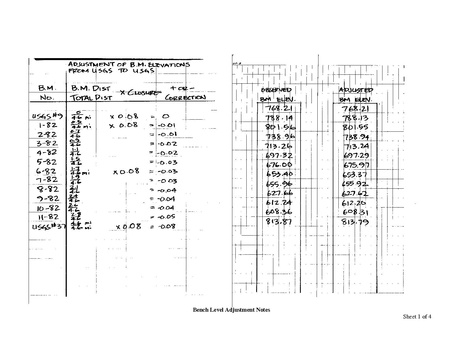 ADJUSTMENT OF B.M. ELEVATIONS
FROM USGS TO USGS
B.M. B.M. DIST x CLOSURE = + OR -
No. TOTAL DIST CORRECTION
OBSERVED ADJUSTED
BM ELEV. BM ELEV.
USGS #9 x 0.08 = 0 768.21 768.21
1-82 x 0.08 = -0.01 788.14 788.13
2-82 = -0.01 801.56 801.55
3-82 = -0.02 738.96 738.94
4-82 = -0.02 713.26 713.24
5-82 = -0.03 697.32 697.29
6-82 x 0.08 = -0.03 676.00 675.97
7-82 = -0.03 653.40 653.37
8-82 = -0.04 655.96 655.92
9-82 = -0.04 627.66 627.62
10-82 = -0.04 612.24 612.20
11-82 = -0.05 608.36 608.31
USGS #37 x 0.08 = -0.08 813.87 813.79
Bench Level Adjustment Notes
Sheet 1 of 4